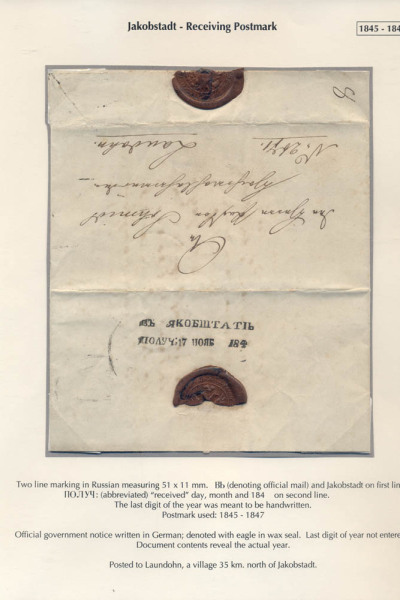 Jakobstadt - Receiving Postmark
1845 - 184
Laudohn.
ВЪ ЯКОБШТАТѢ
ПОЛУЧ: 7 НОЯБ 184
Two line marking in Russian measuring 51 x 11 mm. ВЬ (denoting official mail) and Jakobstadt on first lin
ПОЛУЧ: (abbreviated) "received" day, month and 184 on second line.
The last digit of the year was meant to be handwritten.
Postmark used: 1845 - 1847
Official government notice written in German; denoted with eagle in wax seal. Last digit of year not entere
Document contents reveal the actual year.
Posted to Laundohn, a village 35 km. north of Jakobstadt.